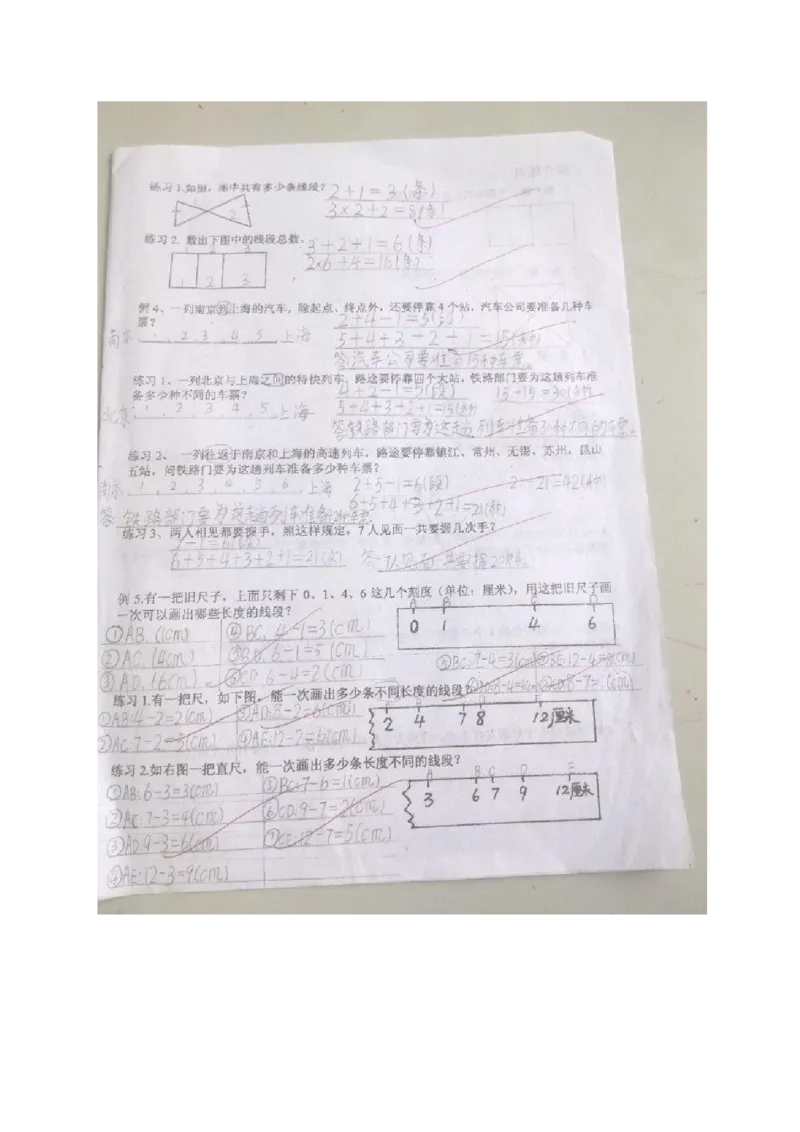 练习1.如图，图中共有多少条线段？ 2+1=3(条)
3×2+2=8(条)
1 2
练习2. 数出下图中的线段总数. 3+2+1=6(条)
2×6+4=16(条)
1 2 3
例4、一列南京到上海的汽车，除起点、终点外，还要停靠4个站，汽车公司要准备几种车
票？ 2+4-1=5(段)
南京 1 2 3 4 5 上海 5+4+3+2+1=15(种)
答:汽车公司要准备15种车票。
练习1、一列北京与上海之间的特快列车，路途要停靠四个大站，铁路部门要为这趟列车准
备多少种不同的车票？ 4+2-1=5(段) 15+15=30(种)
北京 1 2 3 4 5 上海 5+4+3+2+1=15(种)
答:铁路部门要为这趟列车准备30种不同的车票。
练习2、一列往返于南京和上海的高速列车，路途要停靠镇江、常州、无锡、苏州、昆山
五站，问铁路部门要为这趟列车准备多少种车票？
南京 1 2 3 4 5 6 上海 2+5-1=6(段) 21+21=42(种)
6+5+4+3+2+1=21(种)
答:铁路部门要为这趟列车准备
练习3、两人相见都要握手，照这样规定，7人见面一共要握几次手？
7-1=6(段)
6+5+4+3+2+1=21(次) 答:7人见面一共要握21次手。
例5.有一把旧尺子，上面只剩下0、1、4、6这几个刻度（单位：厘米），用这把旧尺子画
一次可以画出哪些长度的线段？
A B C D
0 1 4 6
①AB.(1cm) ④BC. 4-1=3(cm)
②AC.(4cm) ⑤BD. 6-1=5(cm)
③AD.(6cm) ⑥CD. 6-4=2(cm)
⑤BC:7-4=3(cm) ⑥BE:12-4=8(cm)
练习1.有一把尺，如下图，能一次画出多少条不同长度的线段？ 8-4=4(cm) 8-7=1(cm)
①AB:4-2=2(cm) ③AD:8-2=6(cm)
②AC:7-2=5(cm) ④AE:12-2=6(cm)
2 4 7 8 12厘米
练习2.如右图一把直尺，能一次画出多少条长度不同的线段？
①AB:6-3=3(cm) ⑤BC:7-6=1(cm)
②AC:7-3=4(cm) ⑥CD:9-7=2(cm)
③AD:9-3=6(cm) ⑦CE:12-7=5(cm)
④AE:12-3=9(cm)
A B C D E
3 6 7 9 12厘米